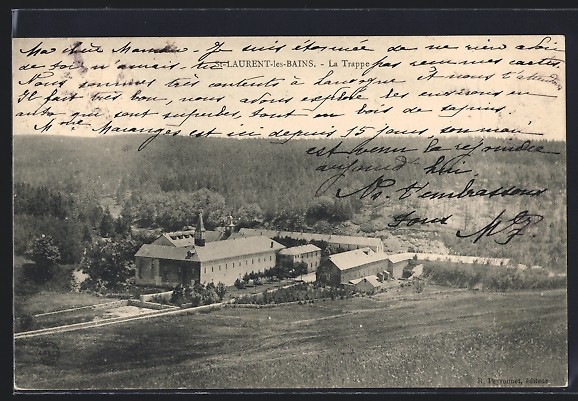 Ma chère Maman - Je suis étonnée de ne rien avoir
de toi n'aurais tu pas reçu mes cartes
St-LAURENT-les-BAINS. - La Trappe
Nous sommes très contents à Langogne et nous t'
Il fait très bon, nous avons exploré les environs en
auto que sont superbes tout en bois de sapins.
Mme Maranges est ici depuis 15 jours, son mari
est venu la rejoindre
aujourd'hui.
Ns t'embrassons
tous
R. Peyronnet, éditeur